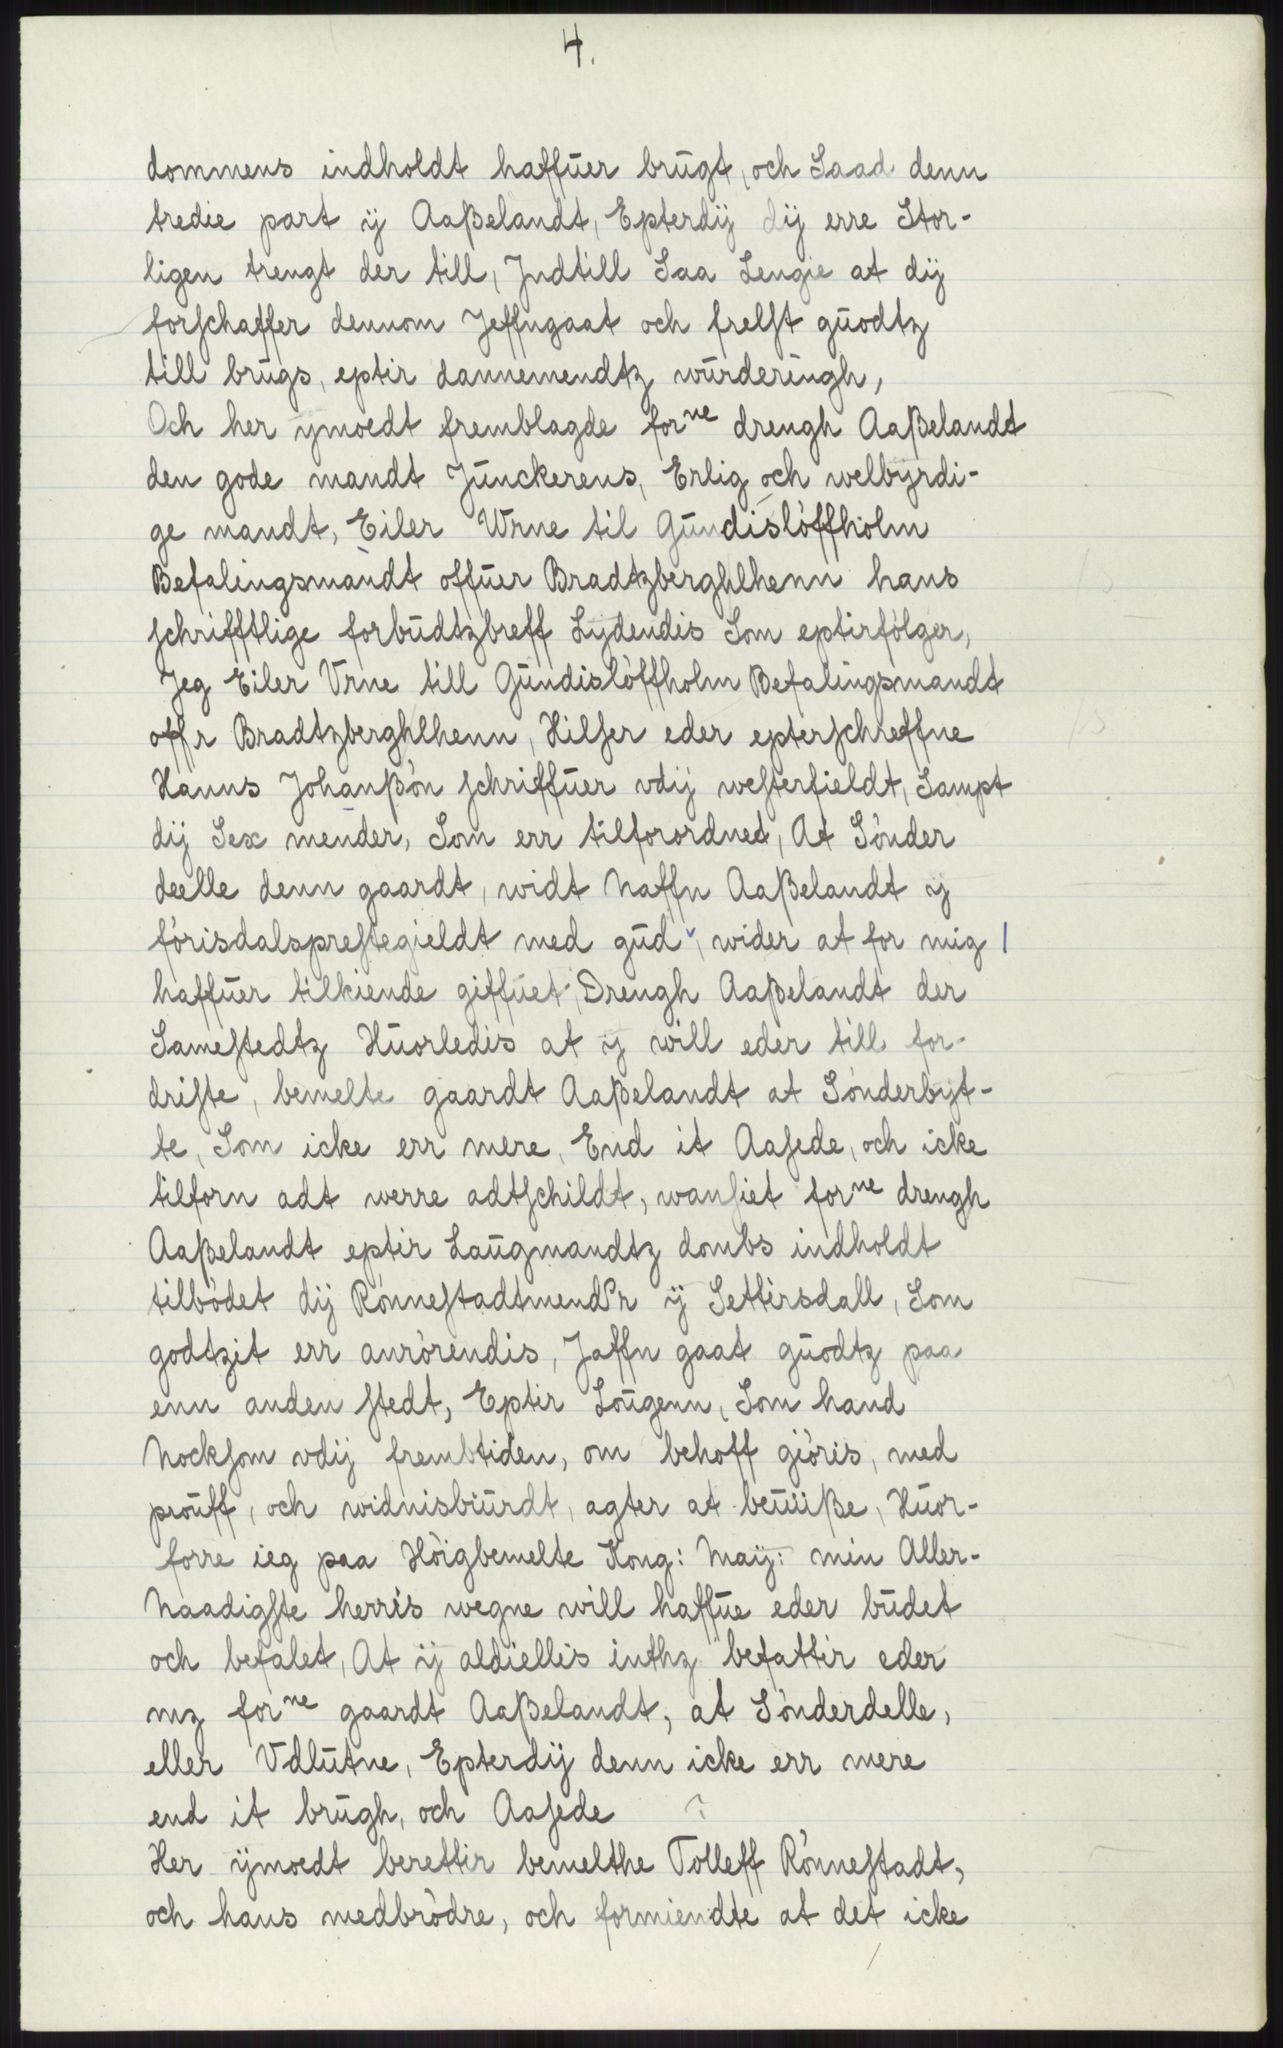 4.
dommens indholdt haffuer brugt, och Saad denn
tredie part ÿ Aaßelandt, Epterdÿ dÿ erre Stor-
ligen trengt der till, Jndtill Saa Lengie at dÿ
forschaffer dennom Jeffngaat och frelst guodtz
till brugs, eptir dannemendtz wurderingh,
Och her ÿmoedt fremblagde forne drengh Aaßelandt
den gode mandt Junckerens, Erlig och welbÿrdi-
ge mandt, Eiler Wrne til Gundislöffholm
Befalingsmandt offuer Bradtzberghlhenn hans
schrifftlige forbudtzbreff Lydendis Som eptirfölger,
Jeg Eiler Vrne till Gundislöffholm Befalingsmandt
offr Bradtzberghlhenn, Hilser eder epterschreffne
Hanns Johanßön schriffuer vdÿ westerfieldt, Sampt
dÿ Sex mender, Som err tilforordnet, At Sönder
deelle denn gaardt, widt Naffn Aaßelandt ÿ
förisdalsprestegieldt med gud, wider at for mig
haffuer tilkiende giffuet, Drengh Aaßelandt der
Samestedtz Huorledis at ÿ will eder till for-
driste, bemelte gaardt Aaßelandt at Sönderbÿt-
te, Som icke err mere, End it Aasede, och icke
tilforn adt werre adtschildt, wansiet forne drengh
Aaßelandt eptir Laugmandtz dombs indholdt
tilbödet dÿ Rönnestadtmend'r ÿ Settirsdall, Som
godtzit err anrörendis, Jaffn gaat guodtz paa
enn anden stedt, Eptir Lougenn, Som hand
Nocksom vdÿ frembtiden, om behoff giöris, med
prouff, och widnisbiurdt, agter at beuiiße, Huor-
forre ieg paa Höigbemelte Kong: Maÿ: min Aller-
Naadigste herris wegne will haffue eder budet
och befalet, At ÿ aldiellis inthz befattir eder
mz forne gaardt Aaßelandt, at Sönderdelle,
eller Vdlutne, Epterdÿ denn icke err mere
end it brugh, och Aasede ?
Her ÿmoedt berettir bemelthe Tolleff Rönnestadt,
och hans medbrödre, och formiendte at det icke